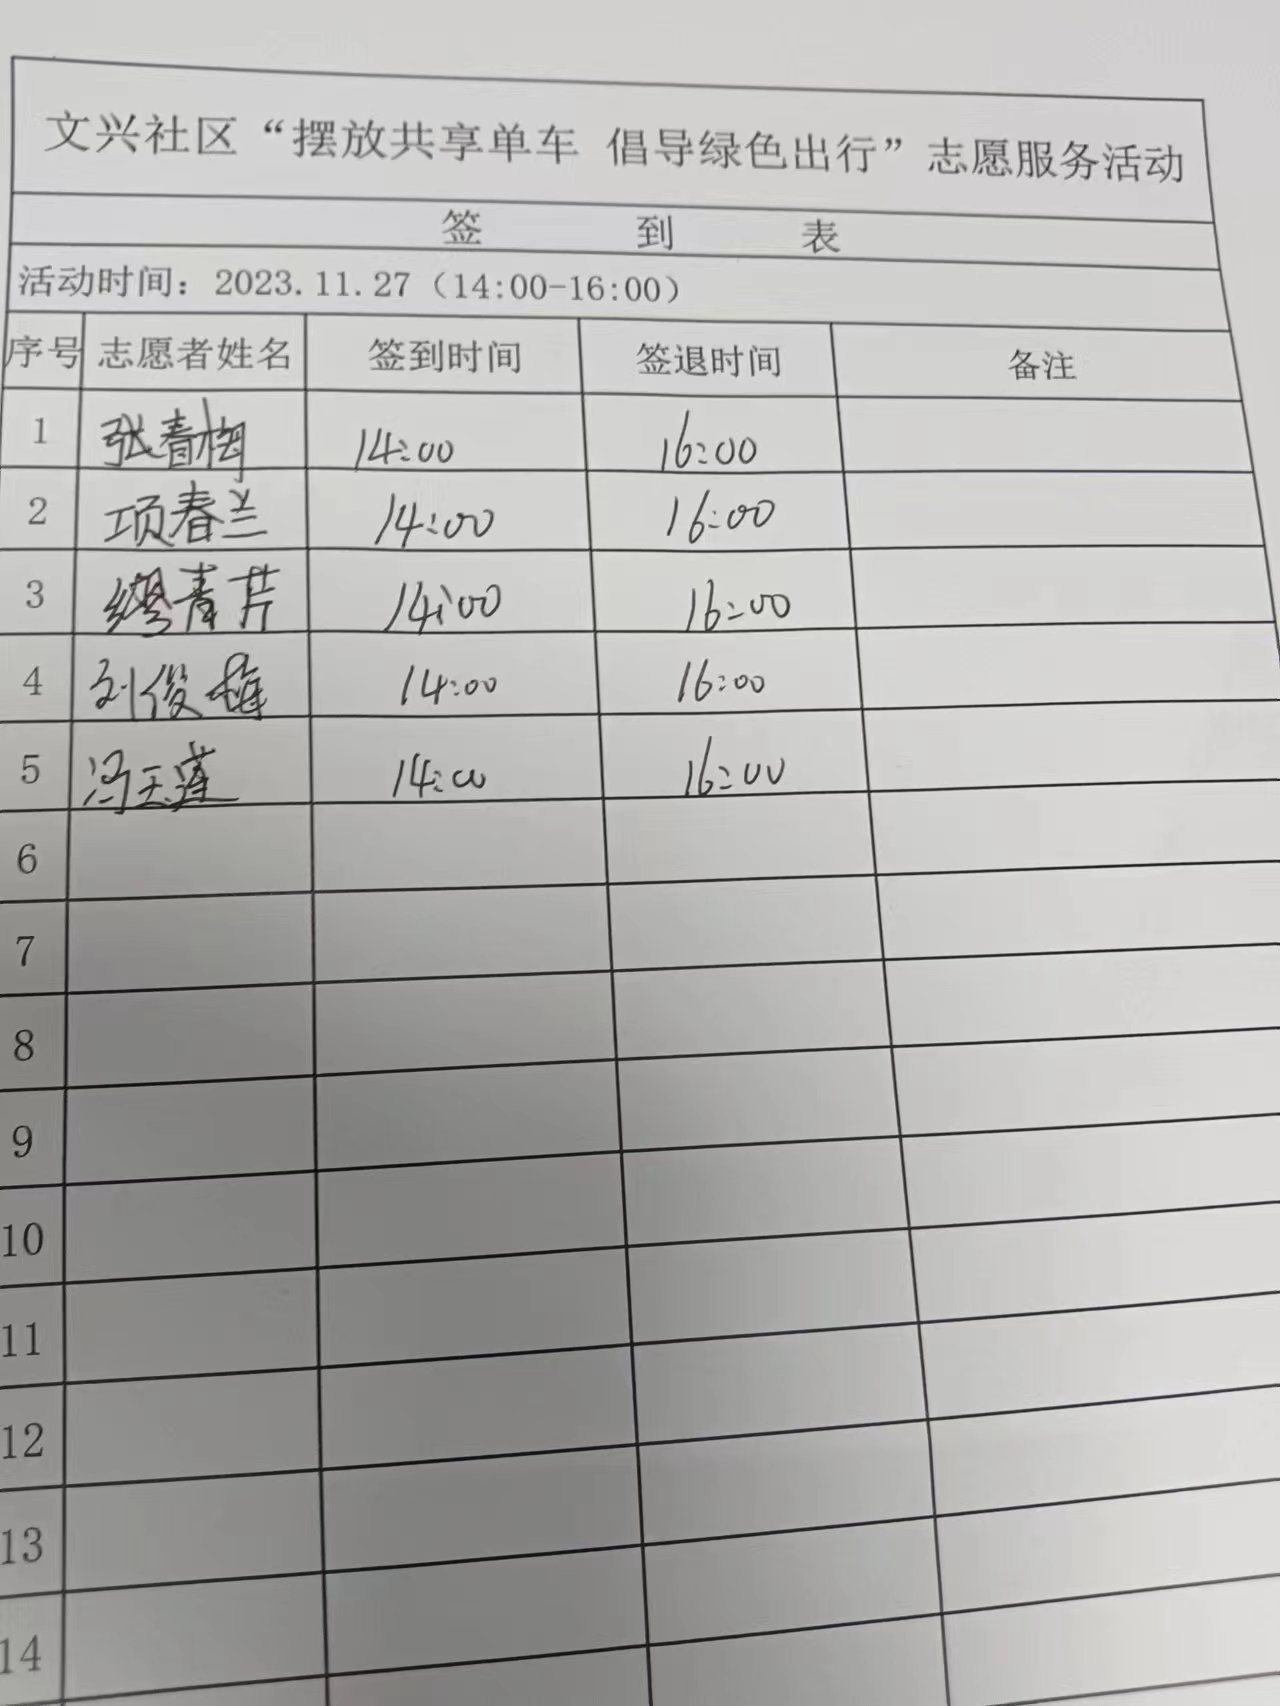 文兴社区“摆放共享单车 倡导绿色出行”志愿服务活动
签 到 表
活动时间：2023.11.27（14:00-16:00）
序号 志愿者姓名 签到时间 签退时间 备注
1 张春梅 14:00 16:00
2 项春兰 14:00 16:00
3 缪青芹 14:00 16:00
4 刘俊梅 14:00 16:00
5 冯玉莲 14:00 16:00
6
7
8
9
10
11
12
13
14